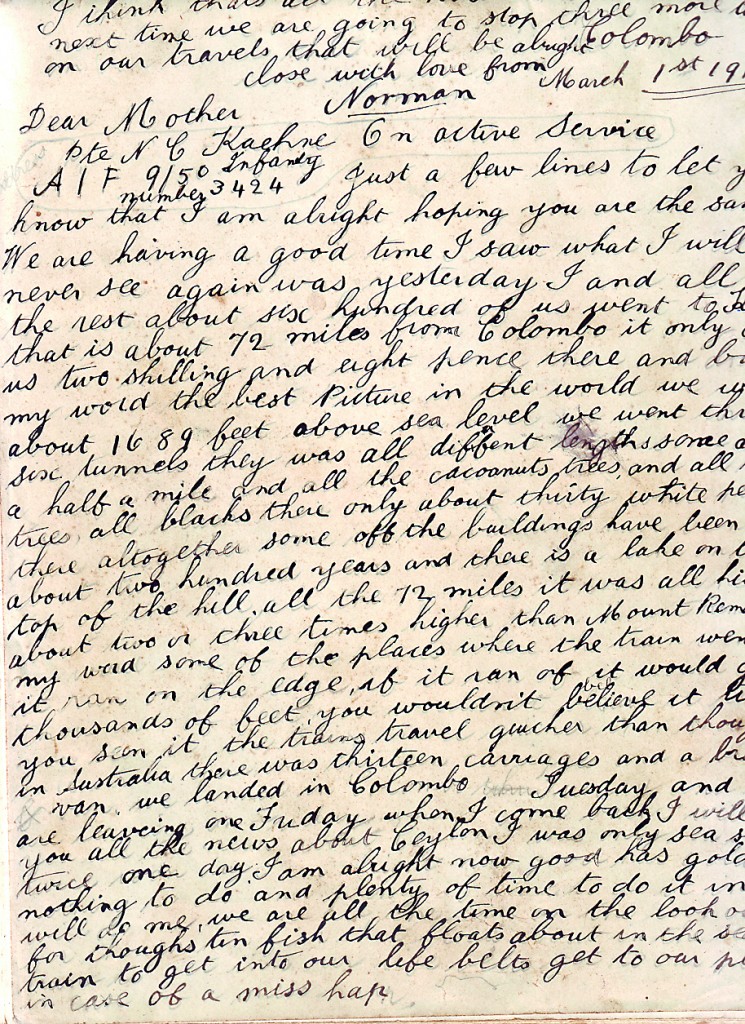 I think thats all the
next time we are going to stop three more
on our travels that will be alright
close with love from
Norman
Colombo
March 1st 191
Dear Mother
Pte N C Kaehne On active Service
A I F 9/50 Infanty
number 3424
Just a few lines to let y
know that I am alright hoping you are the sa
We are having a good time I saw what I will
never see again was yesterday I and all
the rest about six hundred of us went to
that is about 72 miles from Colombo it only
us two shilling and eight pence there and b
my word the best Picture in the world we w
about 1689 feet above sea level we went thr
six tunnels they was all diffrent lengths some a
a half a mile and all the cacoanuts trees and all
trees all blacks there only about thirty white pe
there altogether some off the buildings have been
about two hundred years and there is a lake on t
top of the hill, all the 72 miles it was all hi
about two or three times higher than Mount Rem
my word some of the places where the train wen
it ran on the edge, if it ran of it would g
thousands of feet, you wouldn't believe it
you seen it the trains travel quicker than thou
in Australia there was thirteen carriages and a br
& van, we landed in Colombo Tuesday and
are leaveing one Friday when I come back I will
you all the news about Ceylon I was only sea s
twice one day I am alright now good has gold
nothing to do and plenty of time to do it in
will do me, we are all the time on the look o
for thoughs tin fish that floats about in the se
train to get into our life belts get to our p
in case of a miss hap